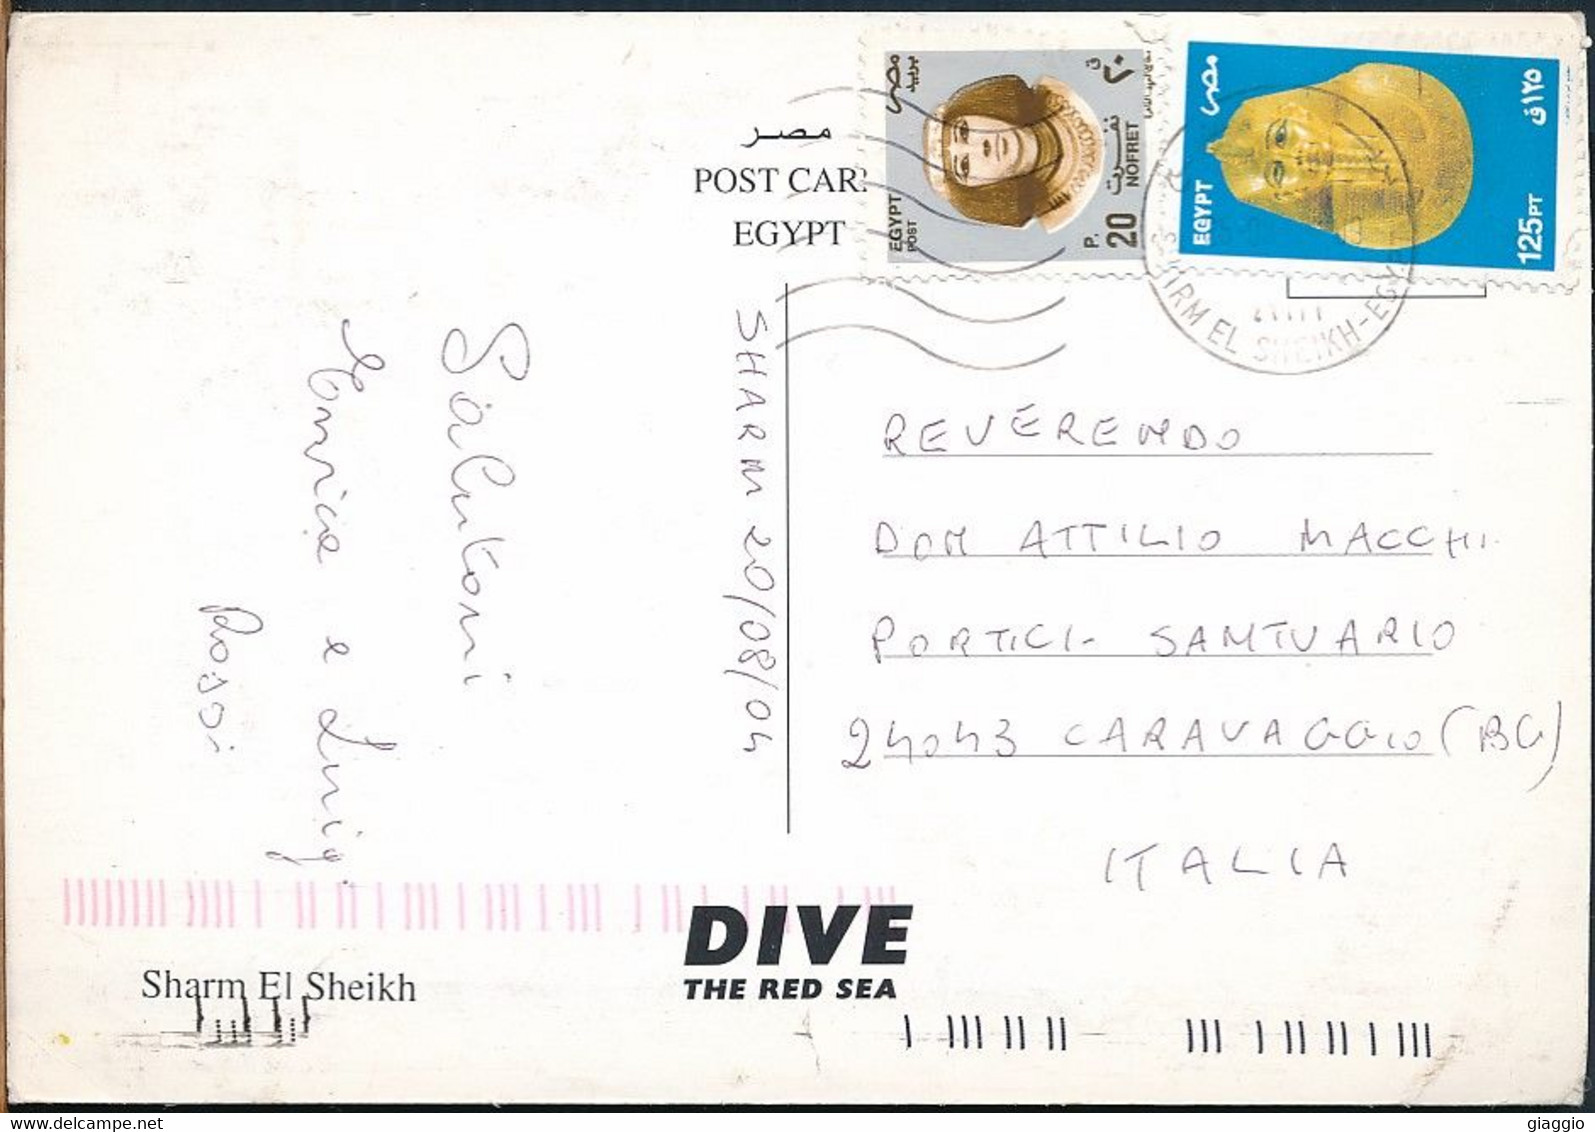 مصر
POST CAR
EGYPT
مصر
بريد
٢٠ ق
نفرت
NOFRET
EGYPT
POST
P.
20
مصر
١٢٥ق
EGYPT
125PT
SHARM EL SHEIKH-EGY
SHARM 20/08/04
Salutoni
Enrica e Luigi
Rossi
REVERENDO
DON ATTILIO MACCHI
PORTICI- SANTUARIO
24043 CARAVAGGIO (BG)
ITALIA
DIVE
THE RED SEA
Sharm El Sheikh
giaggio